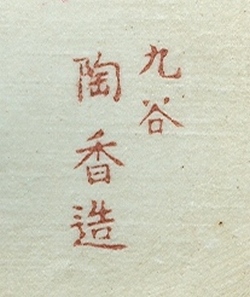 九谷
陶香造